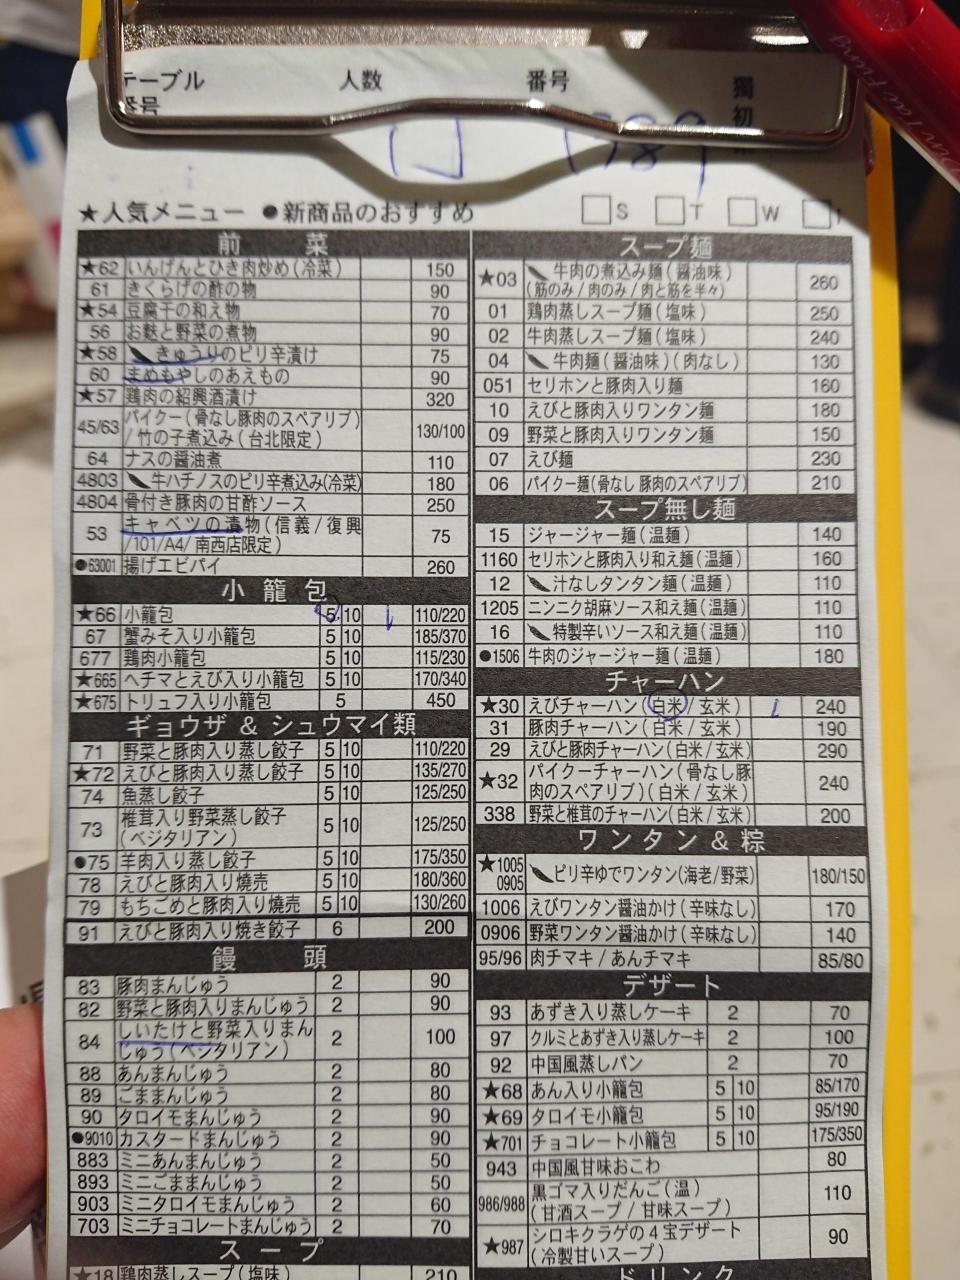 テーブル 人数 番号 獨
番号 初
★人気メニュー ●新商品のおすすめ □S □T □W
前 菜
★62 いんげんとひき肉炒め(冷菜) 150
61 きくらげの酢の物 90
★54 豆腐干の和え物 70
56 お麩と野菜の煮物 90
★58 きゅうりのピリ辛漬け 75
60 まめもやしのあえもの 90
★57 鶏肉の紹興酒漬け 320
45/63 パイクー(骨なし豚肉のスペアリブ)
/竹の子煮込み(台北限定) 130/100
64 ナスの醤油煮 110
4803 牛ハチノスのピリ辛煮込み(冷菜) 180
4804 骨付き豚肉の甘酢ソース 250
53 キャベツの漬物(信義/復興
/101/A4/南西店限定) 75
●63001 揚げエビパイ 260
小 籠 包
★66 小籠包 5 10 110/220
67 蟹みそ入り小籠包 5 10 185/370
677 鶏肉小籠包 5 10 115/230
★665 ヘチマとえび入り小籠包 5 10 170/340
★675 トリュフ入り小籠包 5 450
ギョウザ & シュウマイ類
71 野菜と豚肉入り蒸し餃子 5 10 110/220
★72 えびと豚肉入り蒸し餃子 5 10 135/270
74 魚蒸し餃子 5 10 125/250
73 椎茸入り野菜蒸し餃子
(ベジタリアン) 5 10 125/250
●75 羊肉入り蒸し餃子 5 10 175/350
78 えびと豚肉入り焼売 5 10 180/360
79 もちごめと豚肉入り焼売 5 10 130/260
91 えびと豚肉入り焼き餃子 6 200
饅 頭
83 豚肉まんじゅう 2 90
82 野菜と豚肉入りまんじゅう 2 90
84 しいたけと野菜入りまん
じゅう(ベジタリアン) 2 100
88 あんまんじゅう 2 80
89 ごままんじゅう 2 80
90 タロイモまんじゅう 2 90
●9010 カスタードまんじゅう 2 90
883 ミニあんまんじゅう 2 50
893 ミニごままんじゅう 2 50
903 ミニタロイモまんじゅう 2 60
703 ミニチョコレートまんじゅう 2 70
スープ
★18 鶏肉蒸しスープ(塩味) 210
スープ麺
★03 牛肉の煮込み麺(醤油味)
(筋のみ/肉のみ/肉と筋を半々) 260
01 鶏肉蒸しスープ麺(塩味) 250
02 牛肉蒸しスープ麺(塩味) 240
04 牛肉麺(醤油味)(肉なし) 130
051 セリホンと豚肉入り麺 160
10 えびと豚肉入りワンタン麺 180
09 野菜と豚肉入りワンタン麺 150
07 えび麺 230
06 パイクー麺(骨なし豚肉のスペアリブ) 210
スープ無し麺
15 ジャージャー麺(温麺) 140
1160 セリホンと豚肉入り和え麺(温麺) 160
12 汁なしタンタン麺(温麺) 110
1205 ニンニク胡麻ソース和え麺(温麺) 110
16 特製辛いソース和え麺(温麺) 110
●1506 牛肉のジャージャー麺(温麺) 180
チャーハン
★30 えびチャーハン(白米/玄米) 240
31 豚肉チャーハン(白米/玄米) 190
29 えびと豚肉チャーハン(白米/玄米) 290
★32 パイクーチャーハン(骨なし豚
肉のスペアリブ)(白米/玄米) 240
338 野菜と椎茸のチャーハン(白米/玄米) 200
ワンタン & 粽
★1005
0905 ピリ辛ゆでワンタン(海老/野菜) 180/150
1006 えびワンタン醤油かけ(辛味なし) 170
0906 野菜ワンタン醤油かけ(辛味なし) 140
95/96 肉チマキ/あんチマキ 85/80
デザート
93 あずき入り蒸しケーキ 2 70
97 クルミとあずき入り蒸しケーキ 2 100
92 中国風蒸しパン 2 70
★68 あん入り小籠包 5 10 85/170
★69 タロイモ小籠包 5 10 95/190
★701 チョコレート小籠包 5 10 175/350
943 中国風甘味おこわ 80
986/988 黒ゴマ入りだんご(温)
(甘酒スープ/甘味スープ) 110
★987 シロキクラゲの4宝デザート
(冷製甘いスープ) 90
ドリンク